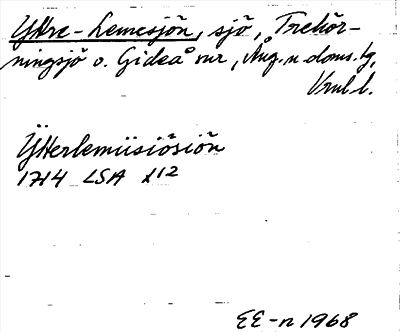 Yttre-Lemesjön, sjö, Trehör-
ningsjö o. Gideå snr, Ång.n doms.tg,
Vnl l.
Ytterlemiisiösiön
1714 LSA X12
EE-n 1968